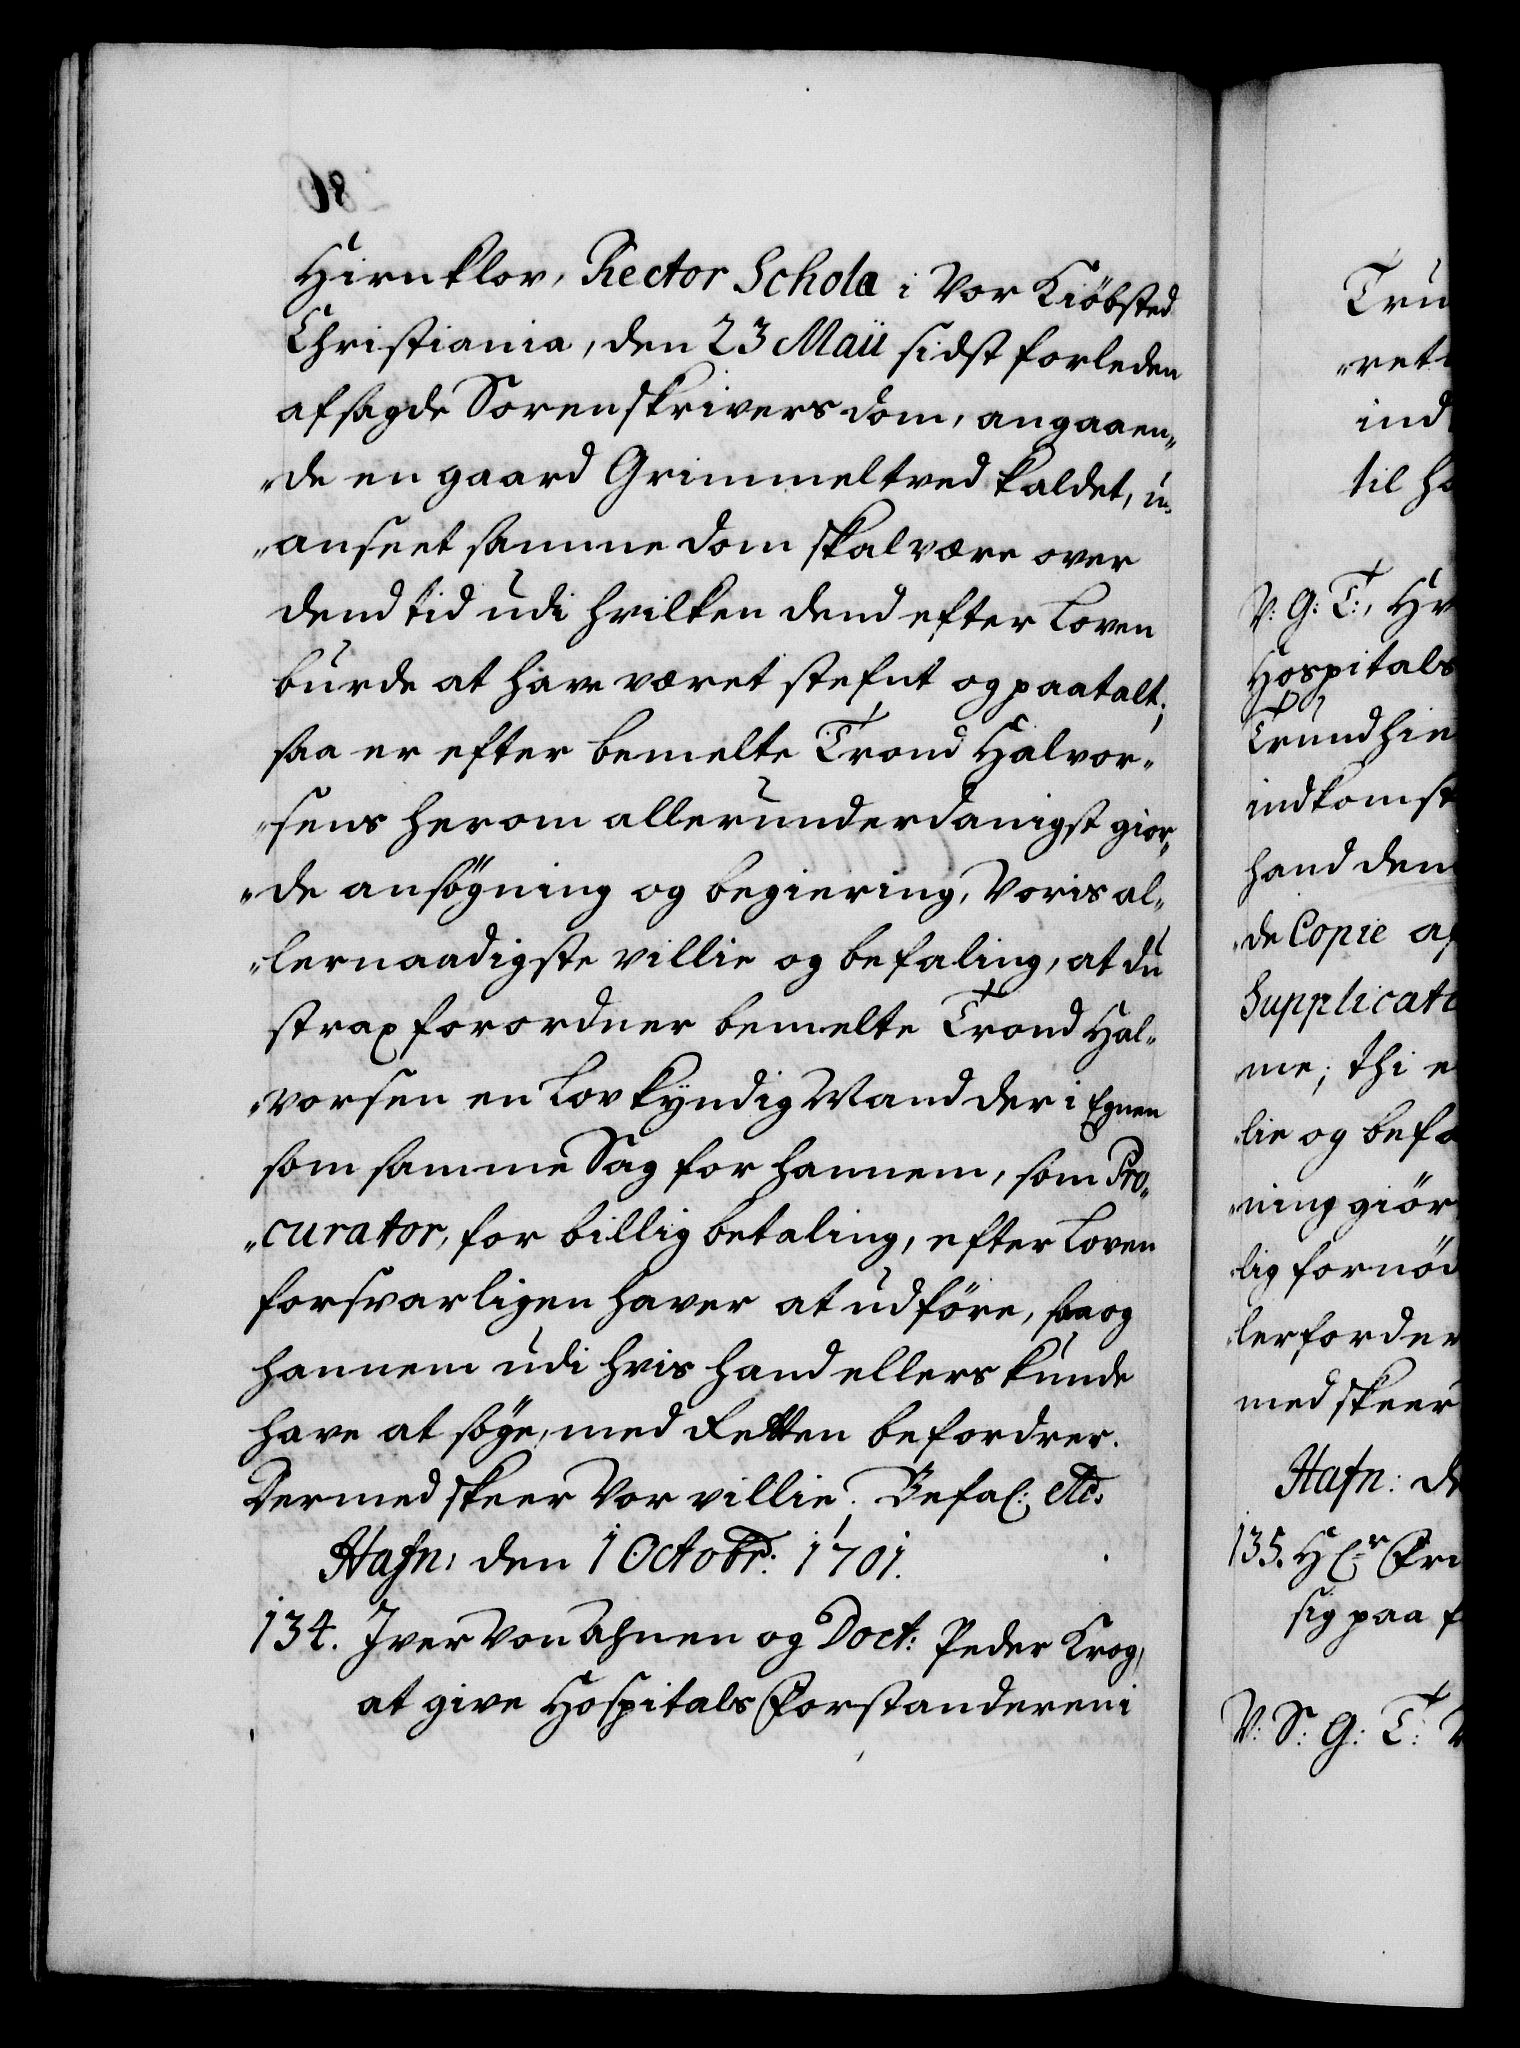 Hiernklov, Rector Schola i Vor Kiöbsted
Christiania, den 23 Maii sidst forleden
afsagde Sorenskrivers dom, angaaen„
„de en gaard Grimmeltved kaldet, u„
„anseet samme dom skal være over
dend tid udi hvilken dend efter Loven
burde at have været stefnt og paatalt;
saa er efter bemelte Trond Halvor„
„sens herom allerunderdanigst gior„
„de ansögning og begiering, Voris al„
„lernaadigste villie og befaling, at du
strax forordner bemelte Trond Hal„
„vorsen en Lovkyndig Mand der i Egnen
som samme Sag for hannem, som Pro„
„curator, for billig betaling, efter Loven
forsvarligen haver at udföre, saa og
hannem udi hvis hand ellers kunde
have at söge, med Retten befordrer.
Dermed skeer Vor villie. Befal: etc:
Hafn: den 1 Octobr: 1701.
134. Iver Von Ahnen og Doct: Peder Krog,
at give Hospitals Forstanderen i
Tru
„ret
ind
til h
V: G: T:, Hr
Hospitals
Trundhie
indkomst
hand dem
„de Copie af
Supplicati
„me; thi e
„lie og befa
„ning giör
„lig fornöd
„lerforder
med skeer
Hafn: de
135. Hr Fri
sig paa f
V: S: G: T: V